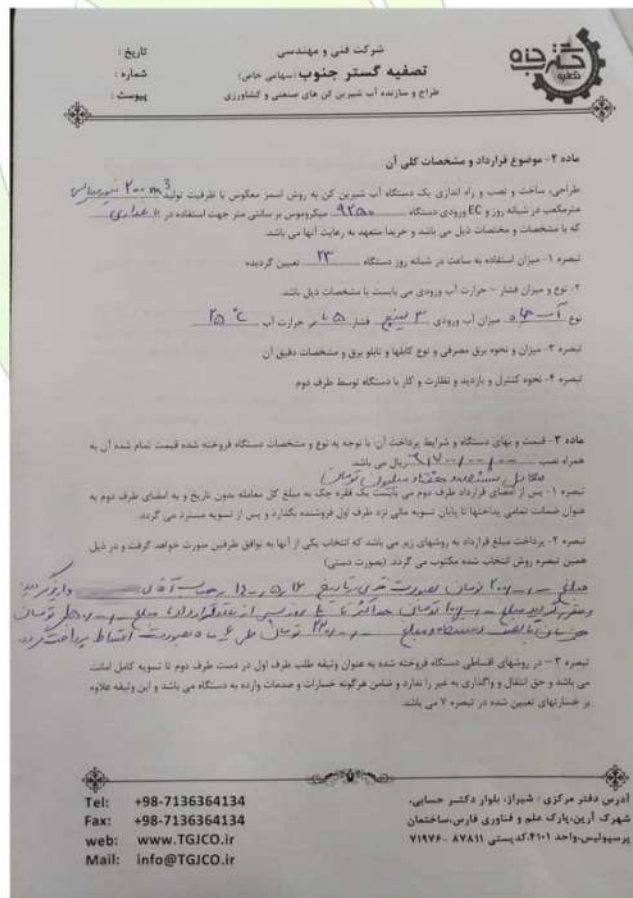 گستر جنوب
تصفیه
شرکت فنی و مهندسی
تصفیه گستر جنوب (سهامی خاص)
طراح و سازنده آب شیرین کن های صنعتی و کشاورزی
تاریخ :
شماره :
پیوست :
ماده ۲- موضوع قرارداد و مشخصات کلی آن
طراحی، ساخت و نصب و راه اندازی یک دستگاه آب شیرین کن به روش اسمز معکوس با ظرفیت تولید ۲۰۰ m³
مترمکعب در شبانه روز و EC ورودی دستگاه ۹۲۵۰ میکروموس بر سانتی متر جهت استفاده در
که با مشخصات و مختصات ذیل می باشد و خریدا متعهد به رعایت آنها می باشد.
تبصره ۱- میزان استفاده به ساعت در شبانه روز دستگاه ۲۳ تعیین گردیده
۲- نوع و میزان فشار – حرارت آب ورودی می بایست با مشخصات ذیل باشد.
نوع آب چاه میزان آب ورودی ۳ اینچ فشار ۵ بار حرارت آب ۲۵ °C
تبصره ۳- میزان و نحوه برق مصرفی و نوع کابلها و تابلو برق و مشخصات دقیق آن
تبصره ۴- نحوه کنترل و بازدید و نظارت و کار با دستگاه توسط طرف دوم
ماده ۳- قیمت و بهای دستگاه و شرایط پرداخت آن: با توجه به نوع و مشخصات دستگاه فروخته شده قیمت تمام شده آن به
همراه نصب ریال می باشد.
معادل ششصد و هفتاد میلیون تومان
تبصره ۱- پس از امضای قرارداد طرف دوم می بایست یک فقره چک به مبلغ کل معامله بدون تاریخ و به امضای طرف دوم به
عنوان ضمانت تمامی پرداختها تا پایان تسویه مالی نزد طرف اول فروشنده بگذارد و پس از تسویه مسترد می گردد.
تبصره ۲- پرداخت مبلغ قرارداد به روشهای زیر می باشد که انتخاب یکی از آنها به توافق طرفین صورت خواهد گرفت و در ذیل
همین تبصره روش انتخاب شده مکتوب می گردد. (بصورت دستی)
مبلغ تومان بصورت نقدی بتاریخ واریز گردید
و مقرر گردید مبلغ تومان حداکثر تا روز پس از عقد قرارداد مبلغ تومان
دستگاه و مبلغ تومان طی ۶ ماه بصورت اقساط پرداخت گردد
تبصره ۳ – در روشهای اقساطی دستگاه فروخته شده به عنوان وثیقه طلب طرف اول در دست طرف دوم تا تسویه کامل امانت
می باشد و حق انتقال و واگذاری به غیر را ندارد و ضامن هرگونه خسارات و صدمات وارده به دستگاه می باشد و این وثیقه علاوه
بر خسارتهای تعیین شده در تبصره ۷ می باشد.
Tel: +98-7136364134
Fax: +98-7136364134
web: www.TGJCO.ir
Mail: info@TGJCO.ir
آدرس دفتر مرکزی : شیراز، بلوار دکتر حسابی،
شهرک آرین،پارک علم و فناوری فارس،ساختمان
پرسپولیس،واحد ۴۱۰۱،کدپستی ۸۷۸۱۱ -۷۱۹۷۶